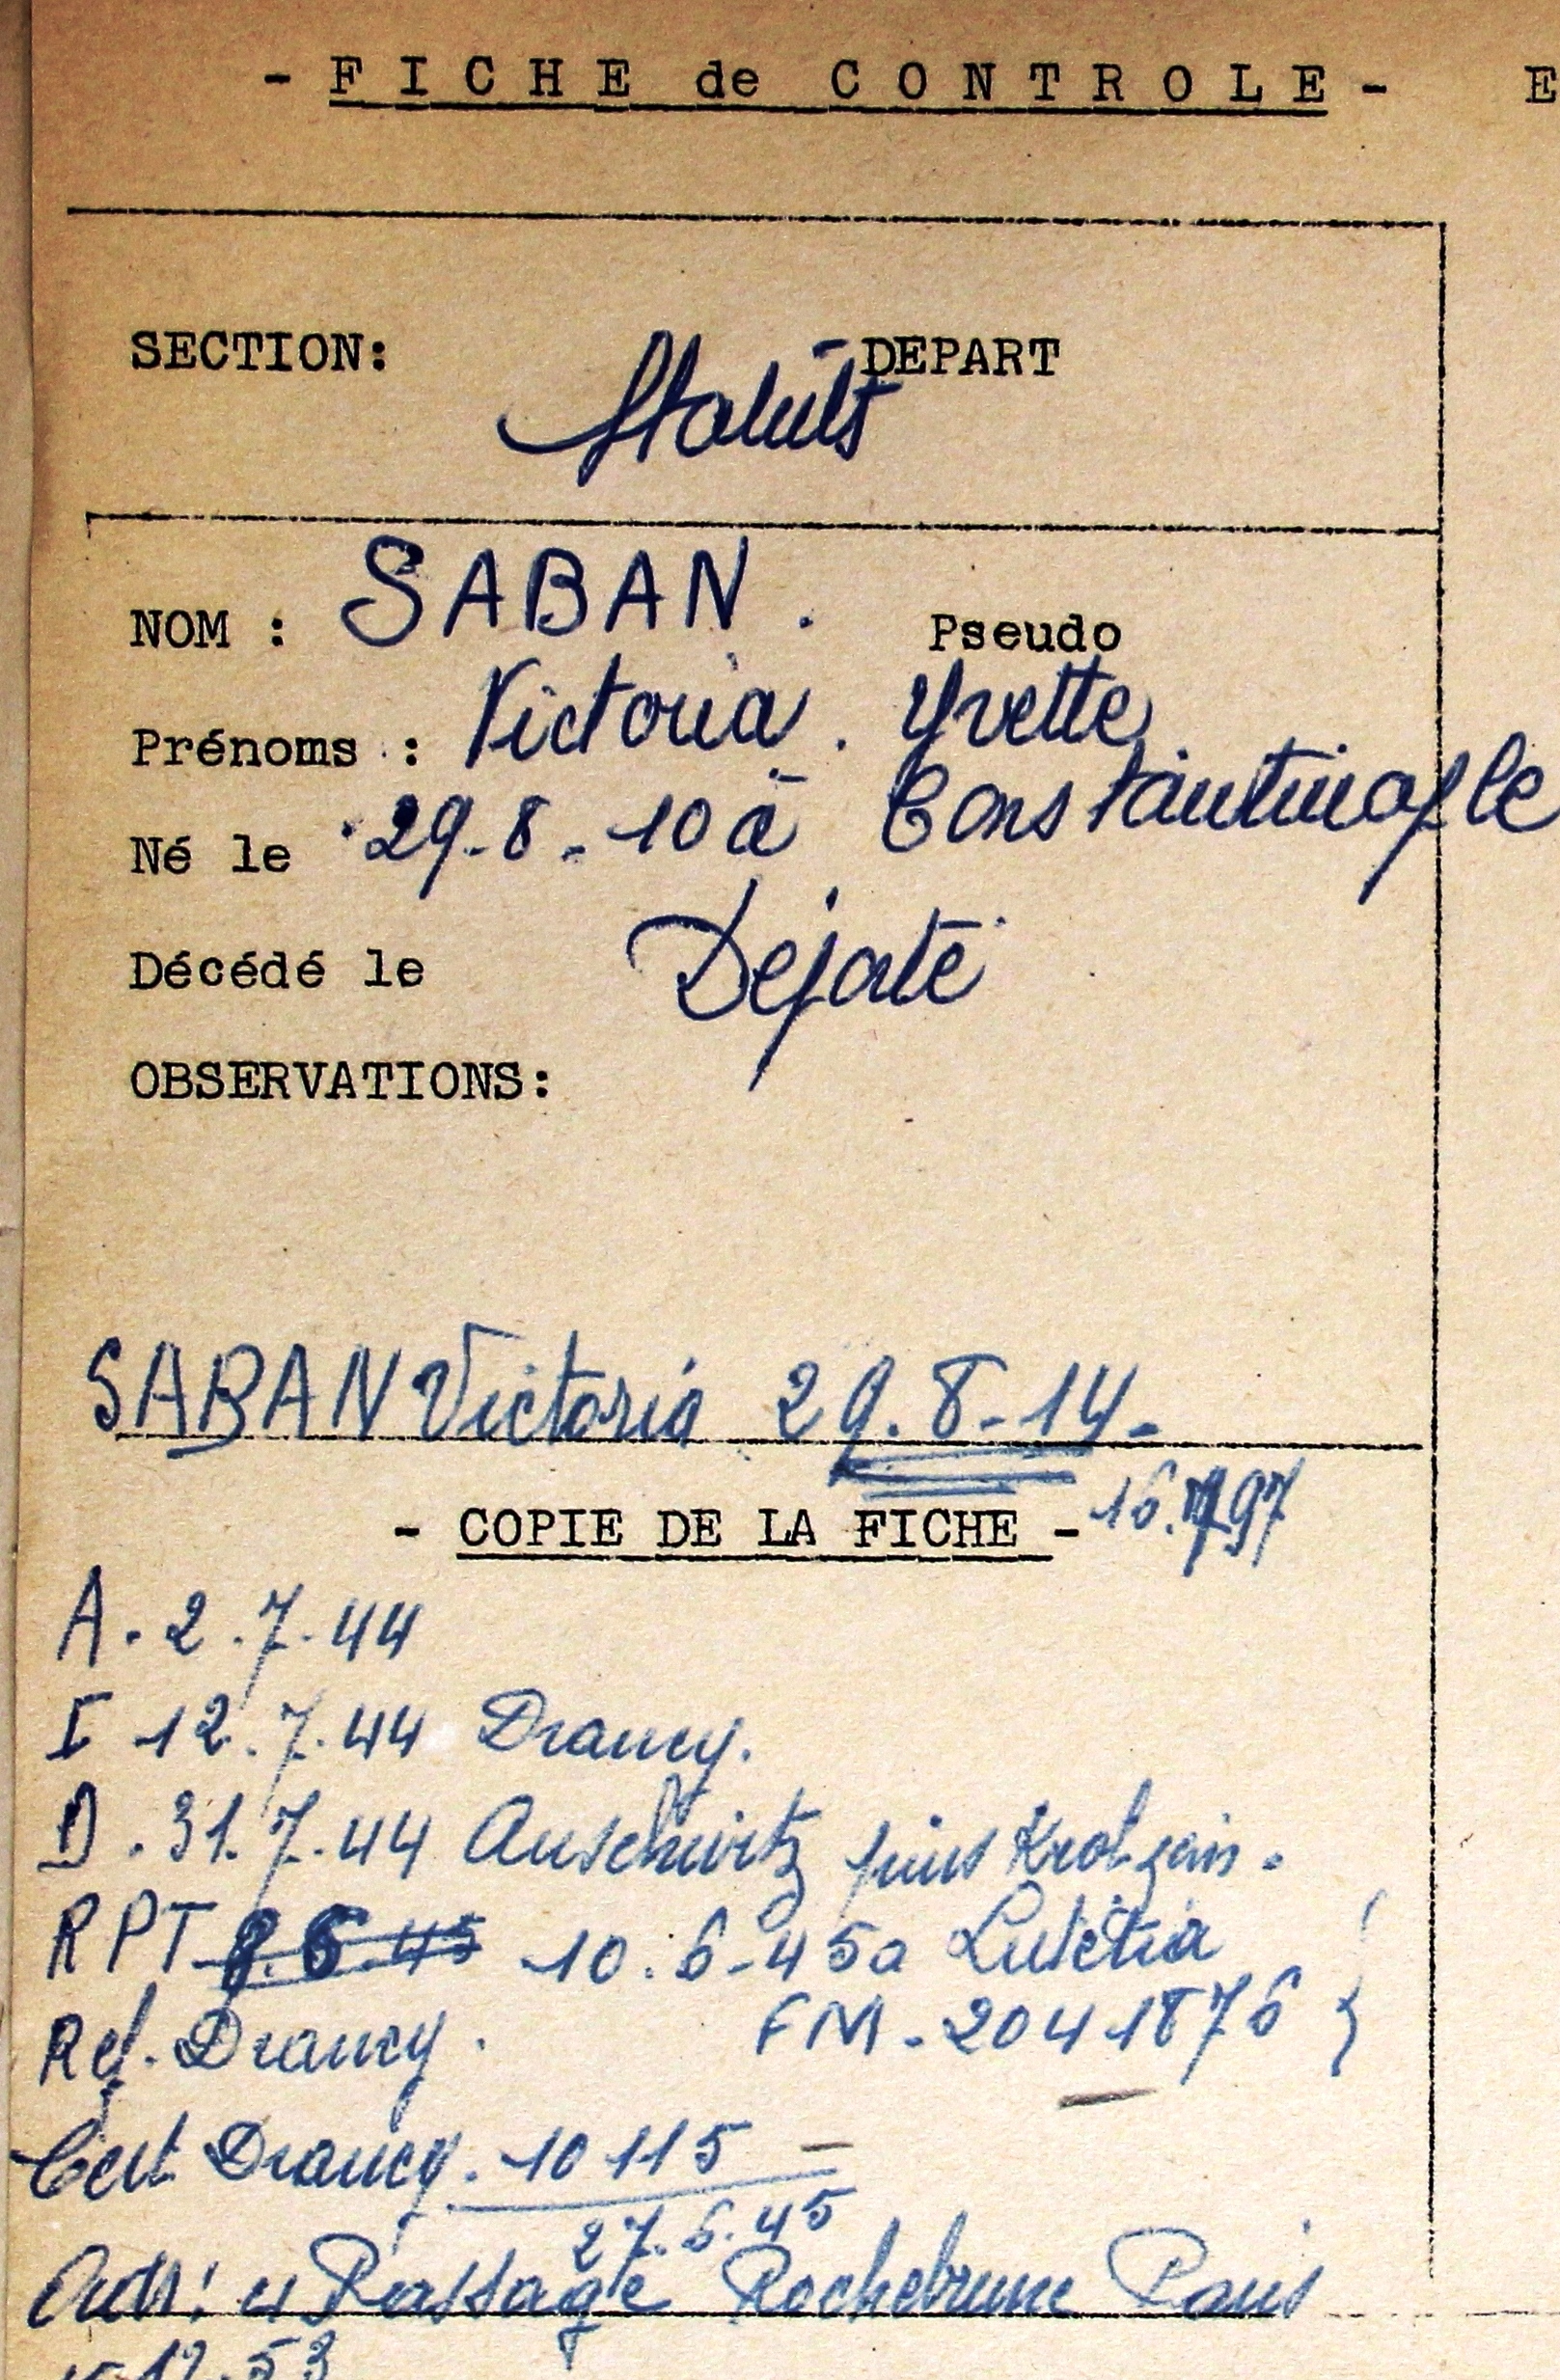 - FICHE de CONTROLE - E
SECTION: DEPART
Statuts
NOM : SABAN . Pseudo
Prénoms : Victoria . Yvette
Né le 29-8-10 à Constantinople
Décédé le
OBSERVATIONS:
SABAN Victoria 29.8-14-
- COPIE DE LA FICHE -
A. 2.7.44
I 12.7.44 Drancy.
D. 31.7.44 Auschwitz puis
RPT 8.6.45 10.6-45 a Lutétia
Ref. Drancy. FM - 2041876
Cert Drancy. 10115 -
27.6.45
Adr: 4 Passage Rochebrune Paris
12.53